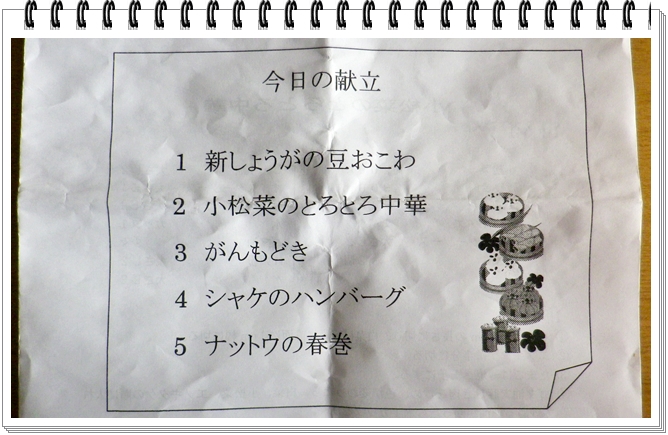 今日の献立
1 新しょうがの豆おこわ
2 小松菜のとろとろ中華
3 がんもどき
4 シャケのハンバーグ
5 ナットウの春巻